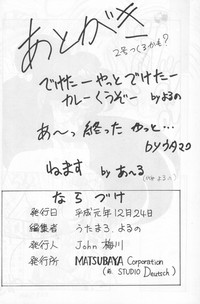 あとがき
2号つくるかも?
でけたーやっとでけたー
カレーくうぞー by よるの
あ～っ 終った やっと…
by ウタマク
ねます by あ～る
ならづけ
発行日 平成元年12月24日
編集者 うたまろ、よるの
発行人 John 柳川
発行所 MATSUBAYA Corporation
STUDIO Deutsch)